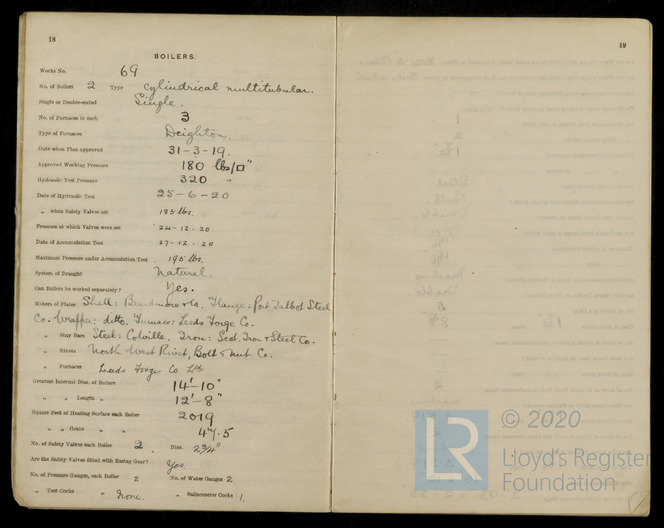 18
BOILERS.
Works No. 69
No. of Boilers 2 Type Cylindrical multitubular.
Single or Double-ended Single.
No. of Furnaces in each 3
Type of Furnaces Deighton.
Date when Plan approved 31-3-19.
Approved Working Pressure 180 lbs/□"
Hydraulic Test Pressure 320 "
Date of Hydraulic Test 25-6-20
" when Safety Valves set 185 lbs.
Pressure at which Valves were set 24-12-20.
Date of Accumulation Test 27-12-20
Maximum Pressure under Accumulation Test 195 lbs.
System of Draught Natural.
Can Boilers be worked separately? Yes.
Makers of Plates Shell: Beardmore & Co. Flange: Port Talbot Steel
Co. Wrapper: ditto. Furnace: Leeds Forge Co.
" Stay Bars Steel: Colville. Iron: Scot. Iron & Steel Co.
" Rivets North West Rivet, Bolt & Nut Co.
" Furnaces Leeds Forge Co Ltd
Greatest Internal Diam. of Boilers 14'-10"
" " Length " 12'-8"
Square Feet of Heating Surface each Boiler 2019
" " Grate " " 47.5
No. of Safety Valves each Boiler 2 Diar. 2¾"
Are the Safety Valves fitted with Easing Gear? Yes.
No. of Pressure Gauges, each Boiler 2 No. of Water Gauges 2
" Test Cocks " None. " Salinometer Cocks 1.
19
© 2020
LR
Lloyd's Register
Foundation